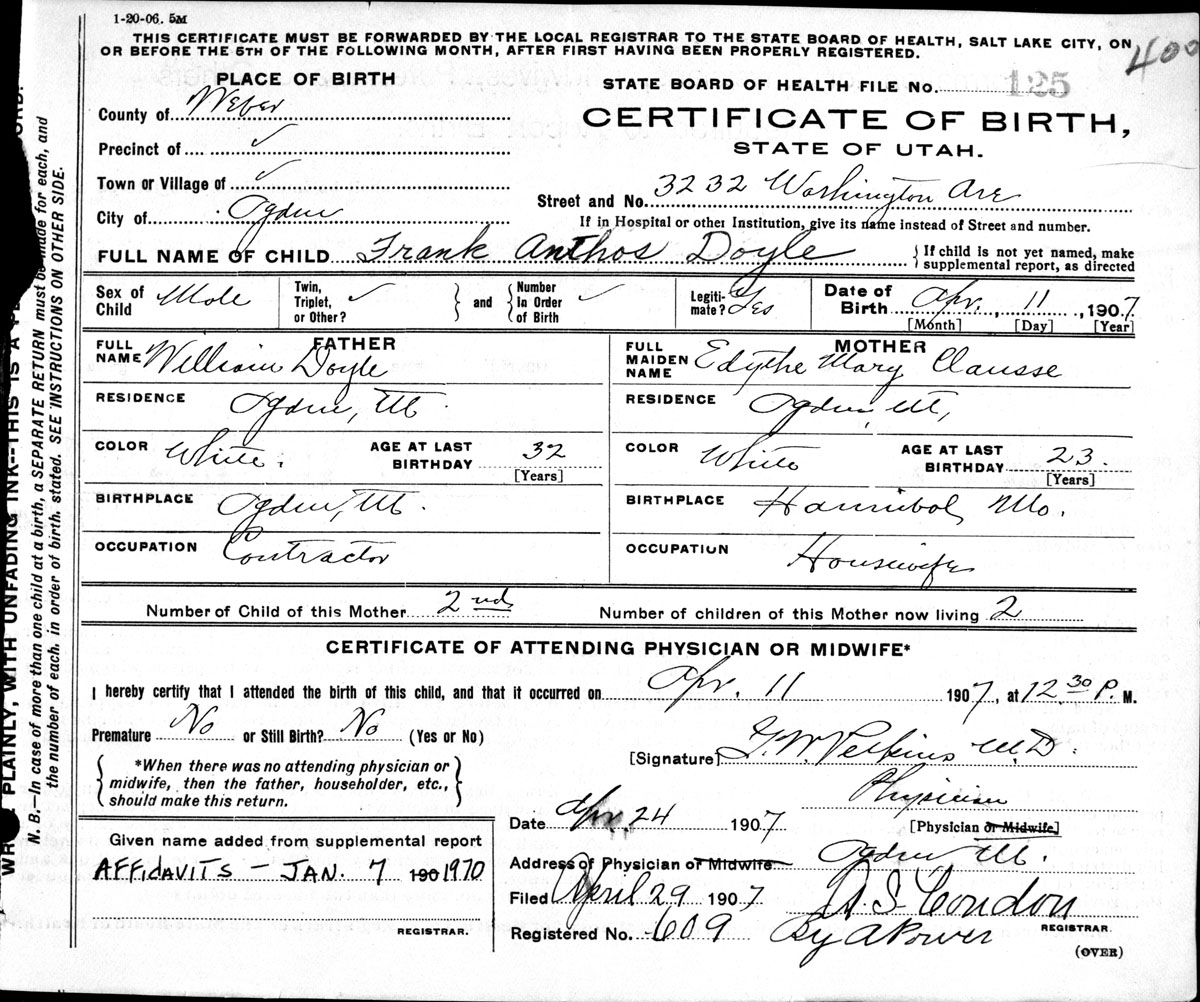 1-20-06. 5M
THIS CERTIFICATE MUST BE FORWARDED BY THE LOCAL REGISTRAR TO THE STATE BOARD OF HEALTH, SALT LAKE CITY, ON
OR BEFORE THE 5TH OF THE FOLLOWING MONTH, AFTER FIRST HAVING BEEN PROPERLY REGISTERED.
400
PLACE OF BIRTH
STATE BOARD OF HEALTH FILE No. 125
County of Weber
CERTIFICATE OF BIRTH,
Precinct of ✓
STATE OF UTAH.
Town or Village of ✓
Street and No. 3232 Washington Ave
City of Ogden
If in Hospital or other Institution, give its name instead of Street and number.
FULL NAME OF CHILD Frank Anthos Doyle { If child is not yet named, make
supplemental report, as directed
Sex of Child Male
Twin, Triplet, or Other? ✓ } and { Number In Order of Birth ✓
Legiti-mate? Yes
Date of Birth Apr. 11, 1907
[Month] [Day] [Year]
FATHER
FULL NAME William Doyle
RESIDENCE Ogden, Ut.
COLOR White. AGE AT LAST BIRTHDAY 32
[Years]
BIRTHPLACE Ogden, Ut.
OCCUPATION Contractor
MOTHER
FULL MAIDEN NAME Edythe Mary Clausse
RESIDENCE Ogden, Ut,
COLOR White AGE AT LAST BIRTHDAY 23.
[Years]
BIRTHPLACE Hannibal, Mo.
OCCUPATION Housewife
Number of Child of this Mother 2nd Number of children of this Mother now living 2
CERTIFICATE OF ATTENDING PHYSICIAN OR MIDWIFE*
I hereby certify that I attended the birth of this child, and that it occurred on Apr. 11 1907, at 12 30 P. M.
Premature No or Still Birth? No (Yes or No)
[Signature] G. W. Perkins M.D.
{ *When there was no attending physician or
midwife, then the father, householder, etc.,
should make this return. }
Physician
Date Apr. 24 1907 [Physician or Midwife]
Given name added from supplemental report
Address of Physician or Midwife Ogden Ut.
AFFIDAVITS - JAN. 7 190 1970
Filed April 29 1907 A S Condon
REGISTRAR.
REGISTRAR.
Registered No. 609 By A Power
(OVER)
PLAINLY, WITH UNFADING INK--THIS IS A
N. B.—In case of more than one child at a birth, a SEPARATE RETURN must be made for each, and
the number of each, in order of birth, stated. SEE INSTRUCTIONS ON OTHER SIDE.